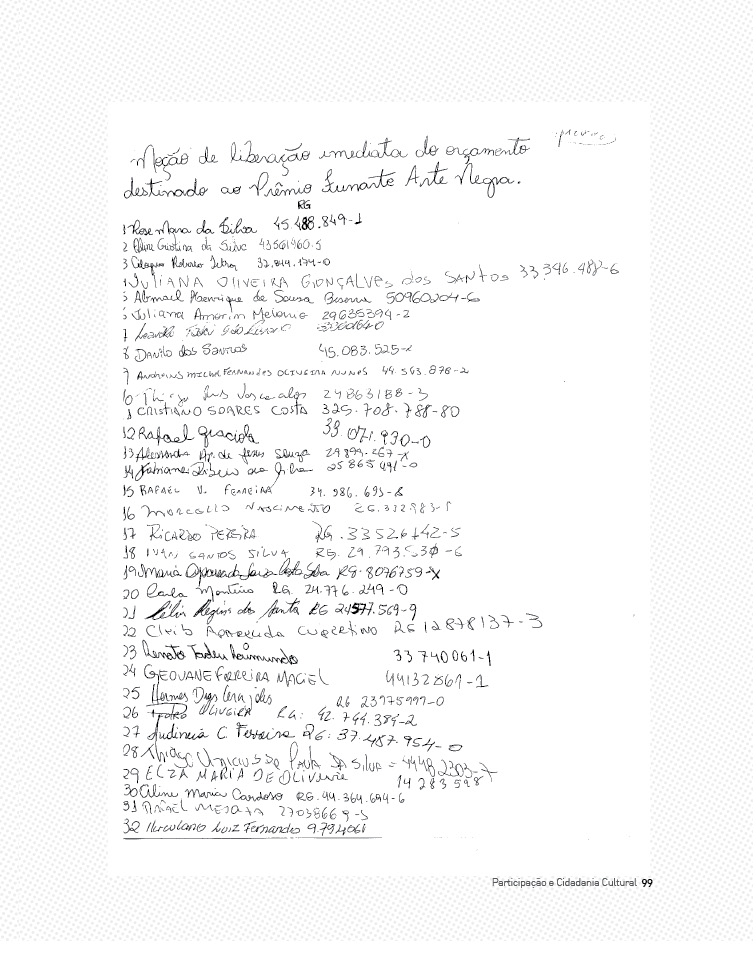 Moção de liberação imediata do orçamento
destinado ao Prêmio Funarte Arte Negra.
RG
1 Rose Mara da Silva 45.488.849-1
2 Cristina da 43561460-5
3 32.844.174-0
JULIANA OLIVEIRA GONÇALVES dos SANTOS 33.396.488-6
5 Henrique de Sousa 50960204-6
Juliana Amorim Melonio 29635394-2
7
8 Danilo dos Santos 45.083.525-x
9 FERNANDES OLIVEIRA NUNES 44.543.878-2
10 Thiago Vasconcelos 24863188-3
CRISTIANO SOARES COSTA 325.708.788-80
12 Rafael Graciola 33.071.930-0
13 Alessandra Ap. de Jesus Souza 29.899.267-x
14 Fabiana Ribeiro da Silva 25865491-0
15 RAFAEL V. FERREIRA 34.986.693-8
16 MARCELLO NASCIMENTO
17 RICARDO PEREIRA RG. 33526142-5
18 IVAN SANTOS SILVA RG. 29.793.530-6
19 Maria Aparecida RG. 8096759-X
20 Carla RG. 24.776.249-0
21 Célia Regina dos Santos RG 24577.569-9
22 Aparecida Cupertino RG 12878137-3
23 Renato Tadeu Raimundo 33740061-1
24 GEOVANE FERREIRA MACIEL 44132861-1
25 Hermes RG 23975999-0
26 PEDRO OLIVEIRA RG: 42.744.384-2
27 C. Ferreira RG: 37.487.954-0
28 THIAGO VINICIUS DE PAULA DA SILVA = 44482303-7
29 ELZA MARIA DE OLIVEIRA 14283598
30 Aline Maria Cardoso RG. 44.364.694-6
31 27038669-5
32 Herculano Luiz Fernando 9.794061
Participação e Cidadania Cultural 99